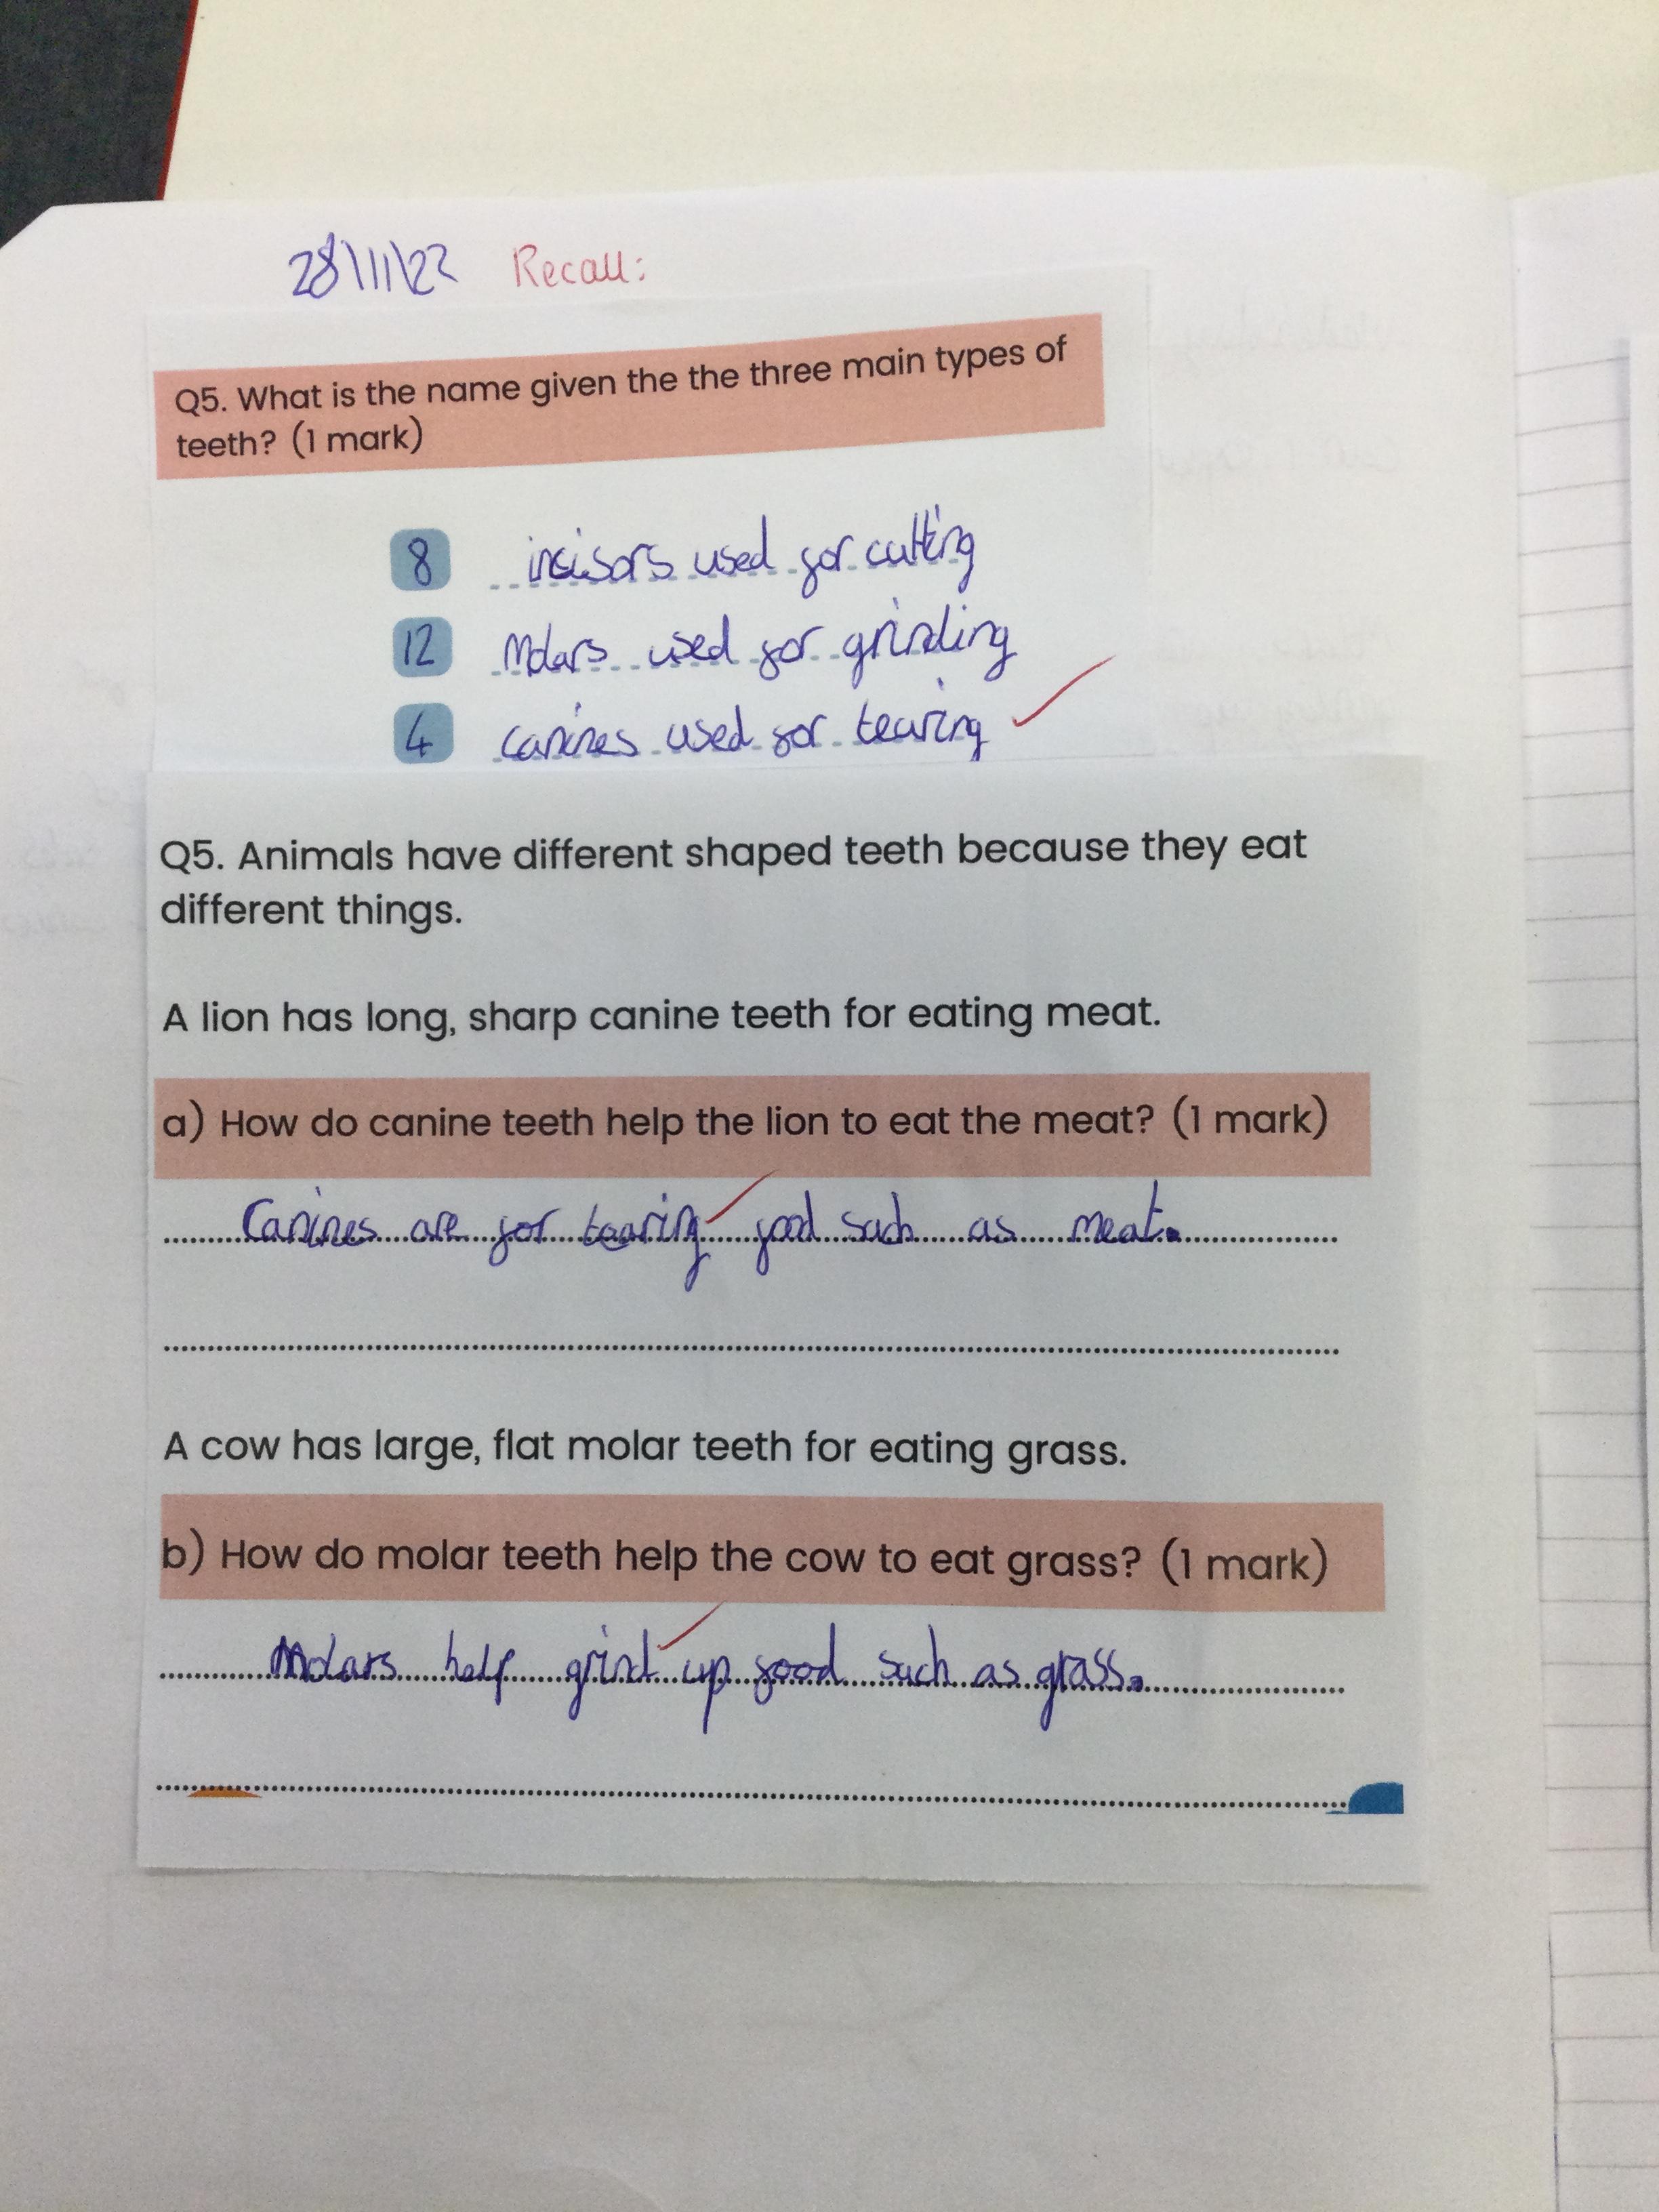 28\11\22 Recall:
Q5. What is the name given the the three main types of
teeth? (1 mark)
8 incisors used for cutting
12 Molars used for grinding
4 canines used for tearing
Q5. Animals have different shaped teeth because they eat
different things.
A lion has long, sharp canine teeth for eating meat.
a) How do canine teeth help the lion to eat the meat? (1 mark)
Canines are for tearing food such as meat.
A cow has large, flat molar teeth for eating grass.
b) How do molar teeth help the cow to eat grass? (1 mark)
Molars help grind up food such as grass.